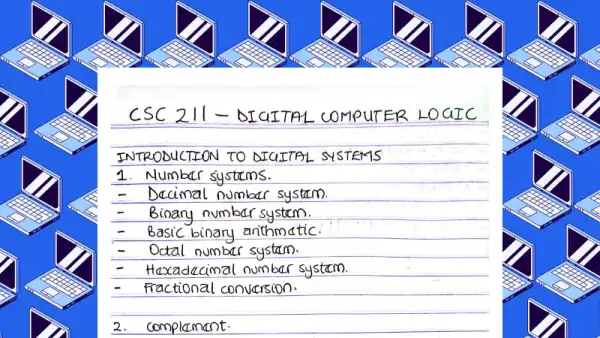 CSC 211 – DIGITAL COMPUTER LOGIC
INTRODUCTION TO DIGITAL SYSTEMS
1. Number systems.
- Decimal number system.
- Binary number system.
- Basic binary arithmetic.
- Octal number system.
- Hexadecimal number system.
- Fractional conversion.
2. complement.